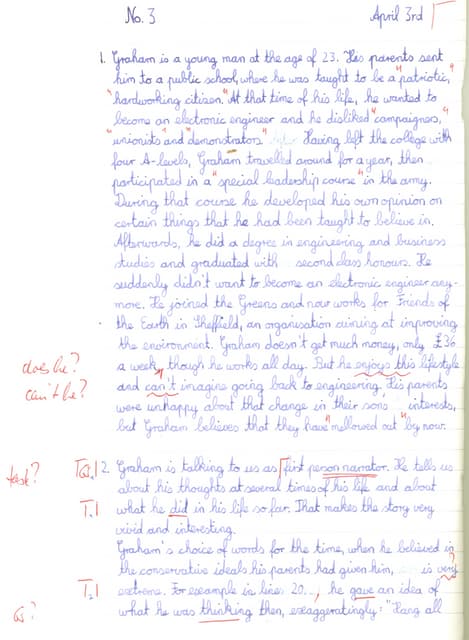 No. 3 April 3rd
1. Graham is a young man at the age of 23. His parents sent
him to a public school, where he was taught to be a "patriotic,
"hardworking citizen." At that time of his life, he wanted to
become an electronic engineer and he disliked "campaigners,"
"unionists" and "demonstrators." Having left the college with
four A-levels, Graham travelled around for a year, then
participated in a "special leadership course" in the army.
During that course he developed his own opinion on
certain things that he had been taught to believe in.
Afterwards, he did a degree in engineering and business
studies and graduated with second class honours. He
suddenly didn't want to become an electronic engineer any-
more. He joined the Greens and now works for Friends of
the Earth in Sheffield, an organisation aiming at improving
the environment. Graham doesn't get much money, only £36
does he? a week, though he works all day. But he enjoys this lifestyle
can't he? and can't imagine going back to engineering. His parents
were unhappy about that change in their sons' interests,
but Graham believes that they have "mellowed out" by now.
task? 2. Graham is talking to us as first person narrator. He tells us
about his thoughts at several times of his life and about
T.| what he did in his life so far. That makes the story very
vivid and interesting.
Graham's choice of words for the time, when he believed in
the conservative ideals his parents had given him, is very
T.| extreme. For example in lines 20..., he gave an idea of
what he was thinking then, exaggeratingly: "Hang all